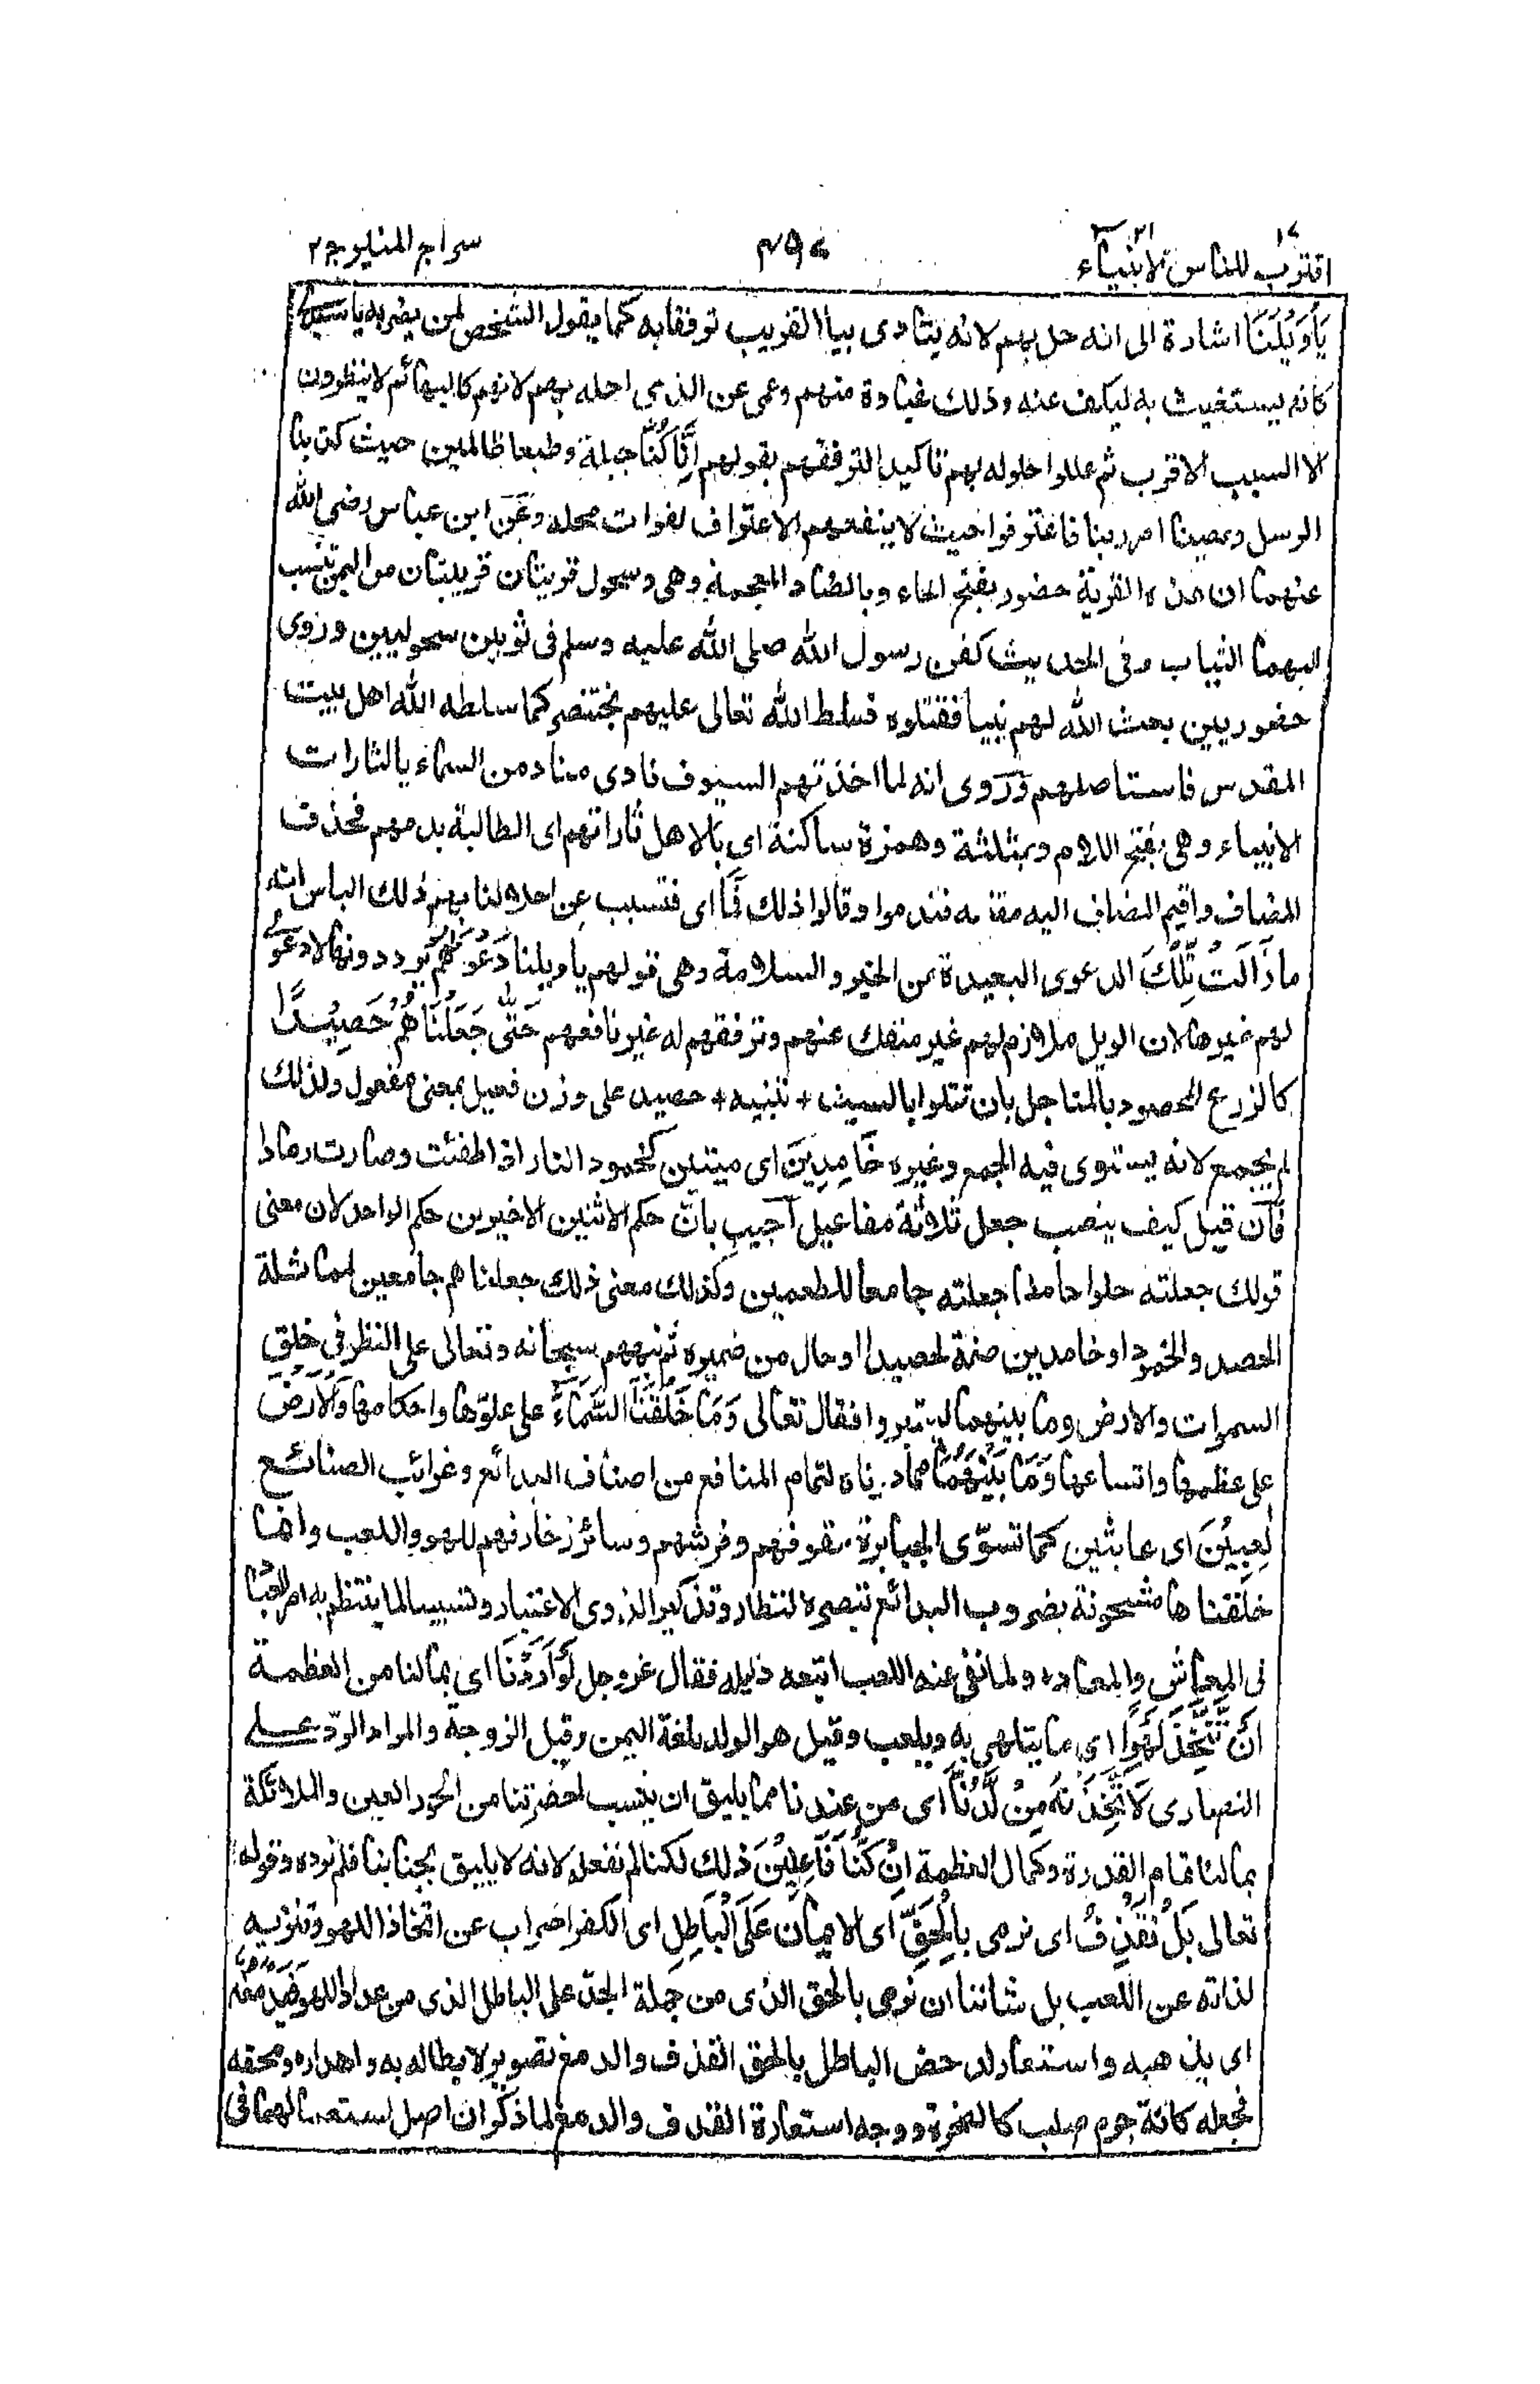 اقترب للناس ١٧ الانبياء ٢١ ٤٩٧ سراج المنير ج ٢
يَا وَيْلَنَا اشارة الى انه حل بهم لانه ينادى بيا القريب ترفقا به كما يقول الشخص لمن يضربه يا سيدى
كانه يستغيث به ليكف عنه وذلك غباوة منهم وعمى عن الذى احله بهم لانهم كالبهائم لا ينظرون
الا السبب الاقرب ثم عللوا حلوله بهم تاكيدا لترفقهم بقولهم اِنَّا كُنَّا جبلة وطبعا ظالمين حيث كذبنا
الرسل وعصينا امر ربنا فاعترفوا حيث لا ينفعهم الاعتراف لفوات محله وعن ابن عباس رضى الله
عنهما ان هذه القرية حضور بفتح الحاء وبالضاد المعجمة وهى وسحول قريتان قريبتان من اليمن تنسب
اليهما الثياب وفى الحديث كفن رسول الله صلى الله عليه وسلم فى ثوبين سحوليين وروى
حضوريين بعث الله لهم نبيا فقتلوه فسلط الله تعالى عليهم بختنصر كما سلطه الله اهل بيت
المقدس فاستاصلهم وروى انه لما اخذتهم السيوف نادى مناد من السماء يالثارات
الانبياء وهى بفتح اللام وبمثلثة وهمزة ساكنة اى يالاهل ثاراتهم اى الطالبة بدمهم فحذف
المضاف واقيم المضاف اليه مقامه فندموا وقالوا ذلك فَمَا اى فتسبب عن احلالنا بهم ذلك الباس انه
مازَالَتْ تِلْكَ الدعوى البعيدة من الخير والسلامة وهى قولهم يا ويلنا دَعْوٰىهُمْ يرددونها لا دعوى
لهم غيرها لان الويل ملازم لهم غير منفك عنهم وترفقهم له غير نافعهم حَتّٰى جَعَلْنَاهُمْ حَصِيْدًا
كالزرع المحصود بالمناجل بان قتلوا بالسيف + تنبيه + حصيد على وزن فعيل بمعنى مفعول ولذلك
لم يجمع لانه يستوى فيه الجمع وغيره خَامِدِيْنَ اى ميتين كخمود النار اذا طفئت وصارت رمادا
فان قيل كيف ينصب جعل ثلاثة مفاعيل اجيب بان حكم الاثنين الاخيرين حكم الواحد لان معنى
قولك جعلته حلوا حامضا جعلته جامعا للطعمين وكذلك معنى ذلك جعلناهم جامعين لمماثلة
الحصد والخمود او خامدين صفة لحصيدا او حال من ضميره ثم نبههم سبحانه وتعالى على النظر فى خلق
السموات والارض وما بينهما ليتدبروا فقال تعالى وَمَا خَلَقْنَا السَّمَاءَ على علوّها واحكامها وَالْاَرْضَ
على عظمها واتساعها وَمَا بَيْنَهُمَا مما دبرناه لتمام المنافع من اصناف البدائع وغرائب الصنائع
لٰعِبِيْنَ اى عابثين كما تسوّى الجبابرة سقوفهم وفرشهم وسائر زخارفهم للهو واللعب وانما
خلقناها مشحونة بضروب البدائع تبصرة للنظار وتذكيرا لذوى الاعتبار وتسببا لما ينتظم به امر العباد
فى المعاش والمعاد ه ولما نفى عنه اللعب اتبعه دليله فقال عز وجل لَوْ اَرَدْنَا اى بمالنا من العظمة
اَنْ نَّتَّخِذَ لَهْوًا اى ما يتلهى به ويلعب وقيل هو الولد بلغة اليمن وقيل الزوجة والمراد الردّ على
النصارى لَاتَّخَذْنٰهُ مِنْ لَّدُنَّا اى من عندنا مما يليق ان ينسب لحضرتنا من الحور العين والملائكة
بمالنا تمام القدرة وكمال العظمة اِنْ كُنَّا فٰعِلِيْنَ ذلك لكنا لم نفعله لانه لا يليق بجنابنا فلم نرده وقوله
تعالى بَلْ نَقْذِفُ اى نرمى بِالْحَقِّ اى الايمان عَلَى الْبَاطِلِ اى الكفر اضراب عن اتخاذ اللهو وتنزيه
لذاته عن اللعب بل شاننا ان نرمى بالحق الذى من جملة الجدّ على الباطل الذى من عداد اللهو فَيَدْمَغُهُ
اى يذهبه واستعار لدحض الباطل بالحق القذف والدمغ تصويرا لابطاله به واهداره ومحقه
فجعله كانه جرم صلب كالصخرة ووجه استعارة القذف والدمغ لما ذكر ان اصل استعمالهما فى